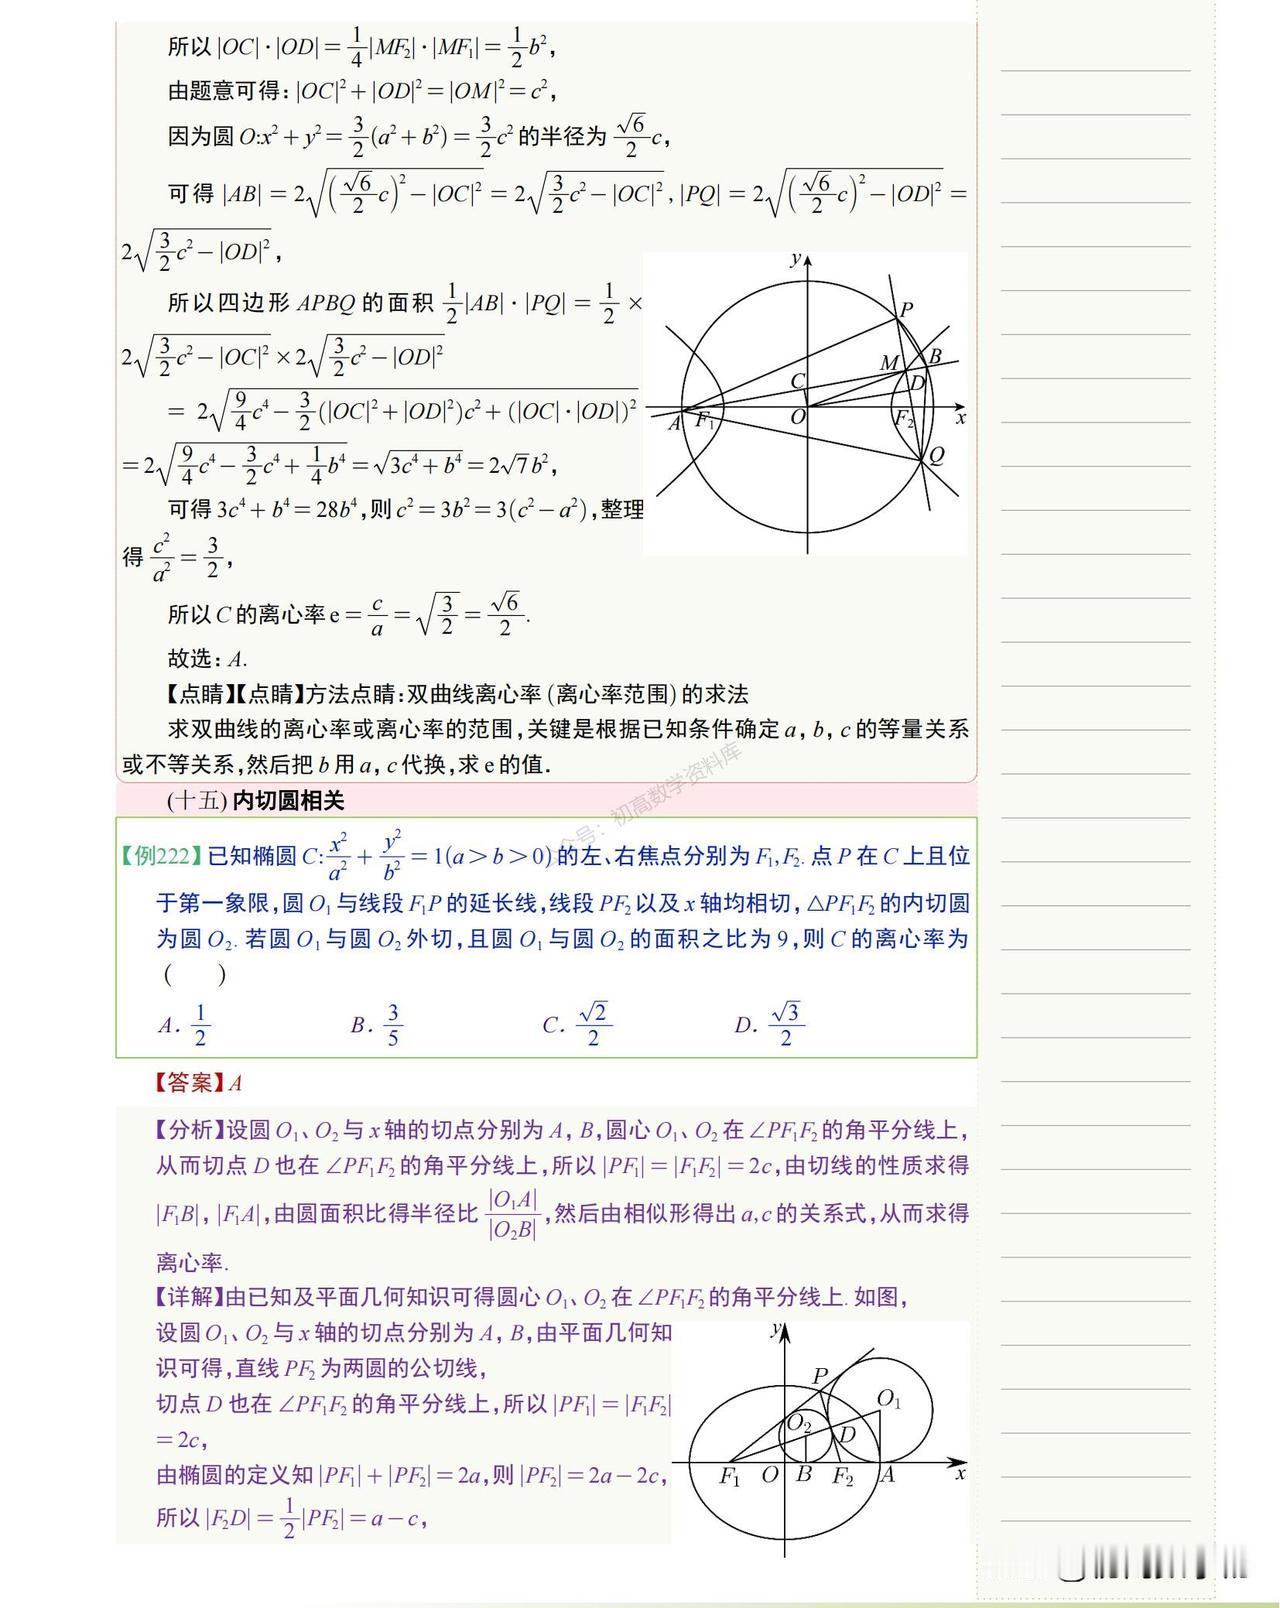 所以|OC|·|OD|=1/4|MF₂|·|MF₁|=1/2b²,
由题意可得:|OC|²+|OD|²=|OM|²=c²,
因为圆O:x²+y²=3/2(a²+b²)=3/2c²的半径为√6/2c,
可得|AB|=2√((√6/2c)²-|OC|²)=2√(3/2c²-|OC|²),|PQ|=2√((√6/2c)²-|OD|²)=
2√(3/2c²-|OD|²),
所以四边形APBQ的面积1/2|AB|·|PQ|=1/2×
2√(3/2c²-|OC|²)×2√(3/2c²-|OD|²)
=2√(9/4c⁴-3/2(|OC|²+|OD|²)c²+(|OC|·|OD|)²)
=2√(9/4c⁴-3/2c⁴+1/4b⁴)=√(3c⁴+b⁴)=2√7b²,
可得3c⁴+b⁴=28b⁴,则c²=3b²=3(c²-a²),整理
得c²/a²=3/2,
y
P
M
B
C
D
A
F₁
O
F₂
x
Q
所以C的离心率e=c/a=√(3/2)=√6/2.
故选:A.
【点睛】【点睛】方法点睛:双曲线离心率(离心率范围)的求法
求双曲线的离心率或离心率的范围,关键是根据已知条件确定a,b,c的等量关系
或不等关系,然后把b用a,c代换,求e的值.
众号：初高数学资料库
(十五)内切圆相关
【例222】已知椭圆C:x²/a²+y²/b²=1(a>b>0)的左、右焦点分别为F₁,F₂.点P在C上且位
于第一象限,圆O₁与线段F₁P的延长线,线段PF₂以及x轴均相切,△PF₁F₂的内切圆
为圆O₂.若圆O₁与圆O₂外切,且圆O₁与圆O₂的面积之比为9,则C的离心率为
(  )
A. 1/2 B. 3/5 C. √2/2 D. √3/2
【答案】A
【分析】设圆O₁、O₂与x轴的切点分别为A,B,圆心O₁、O₂在∠PF₁F₂的角平分线上,
从而切点D也在∠PF₁F₂的角平分线上,所以|PF₁|=|F₁F₂|=2c,由切线的性质求得
|F₁B|,|F₁A|,由圆面积比得半径比|O₁A|/|O₂B|,然后由相似形得出a,c的关系式,从而求得
离心率.
【详解】由已知及平面几何知识可得圆心O₁、O₂在∠PF₁F₂的角平分线上.如图,
设圆O₁、O₂与x轴的切点分别为A,B,由平面几何知
识可得,直线PF₂为两圆的公切线,
切点D也在∠PF₁F₂的角平分线上,所以|PF₁|=|F₁F₂|
=2c,
由椭圆的定义知|PF₁|+|PF₂|=2a,则|PF₂|=2a-2c,
所以|F₂D|=1/2|PF₂|=a-c,
y
P
O₁
O₂
D
F₁
O
B
F₂
A
x